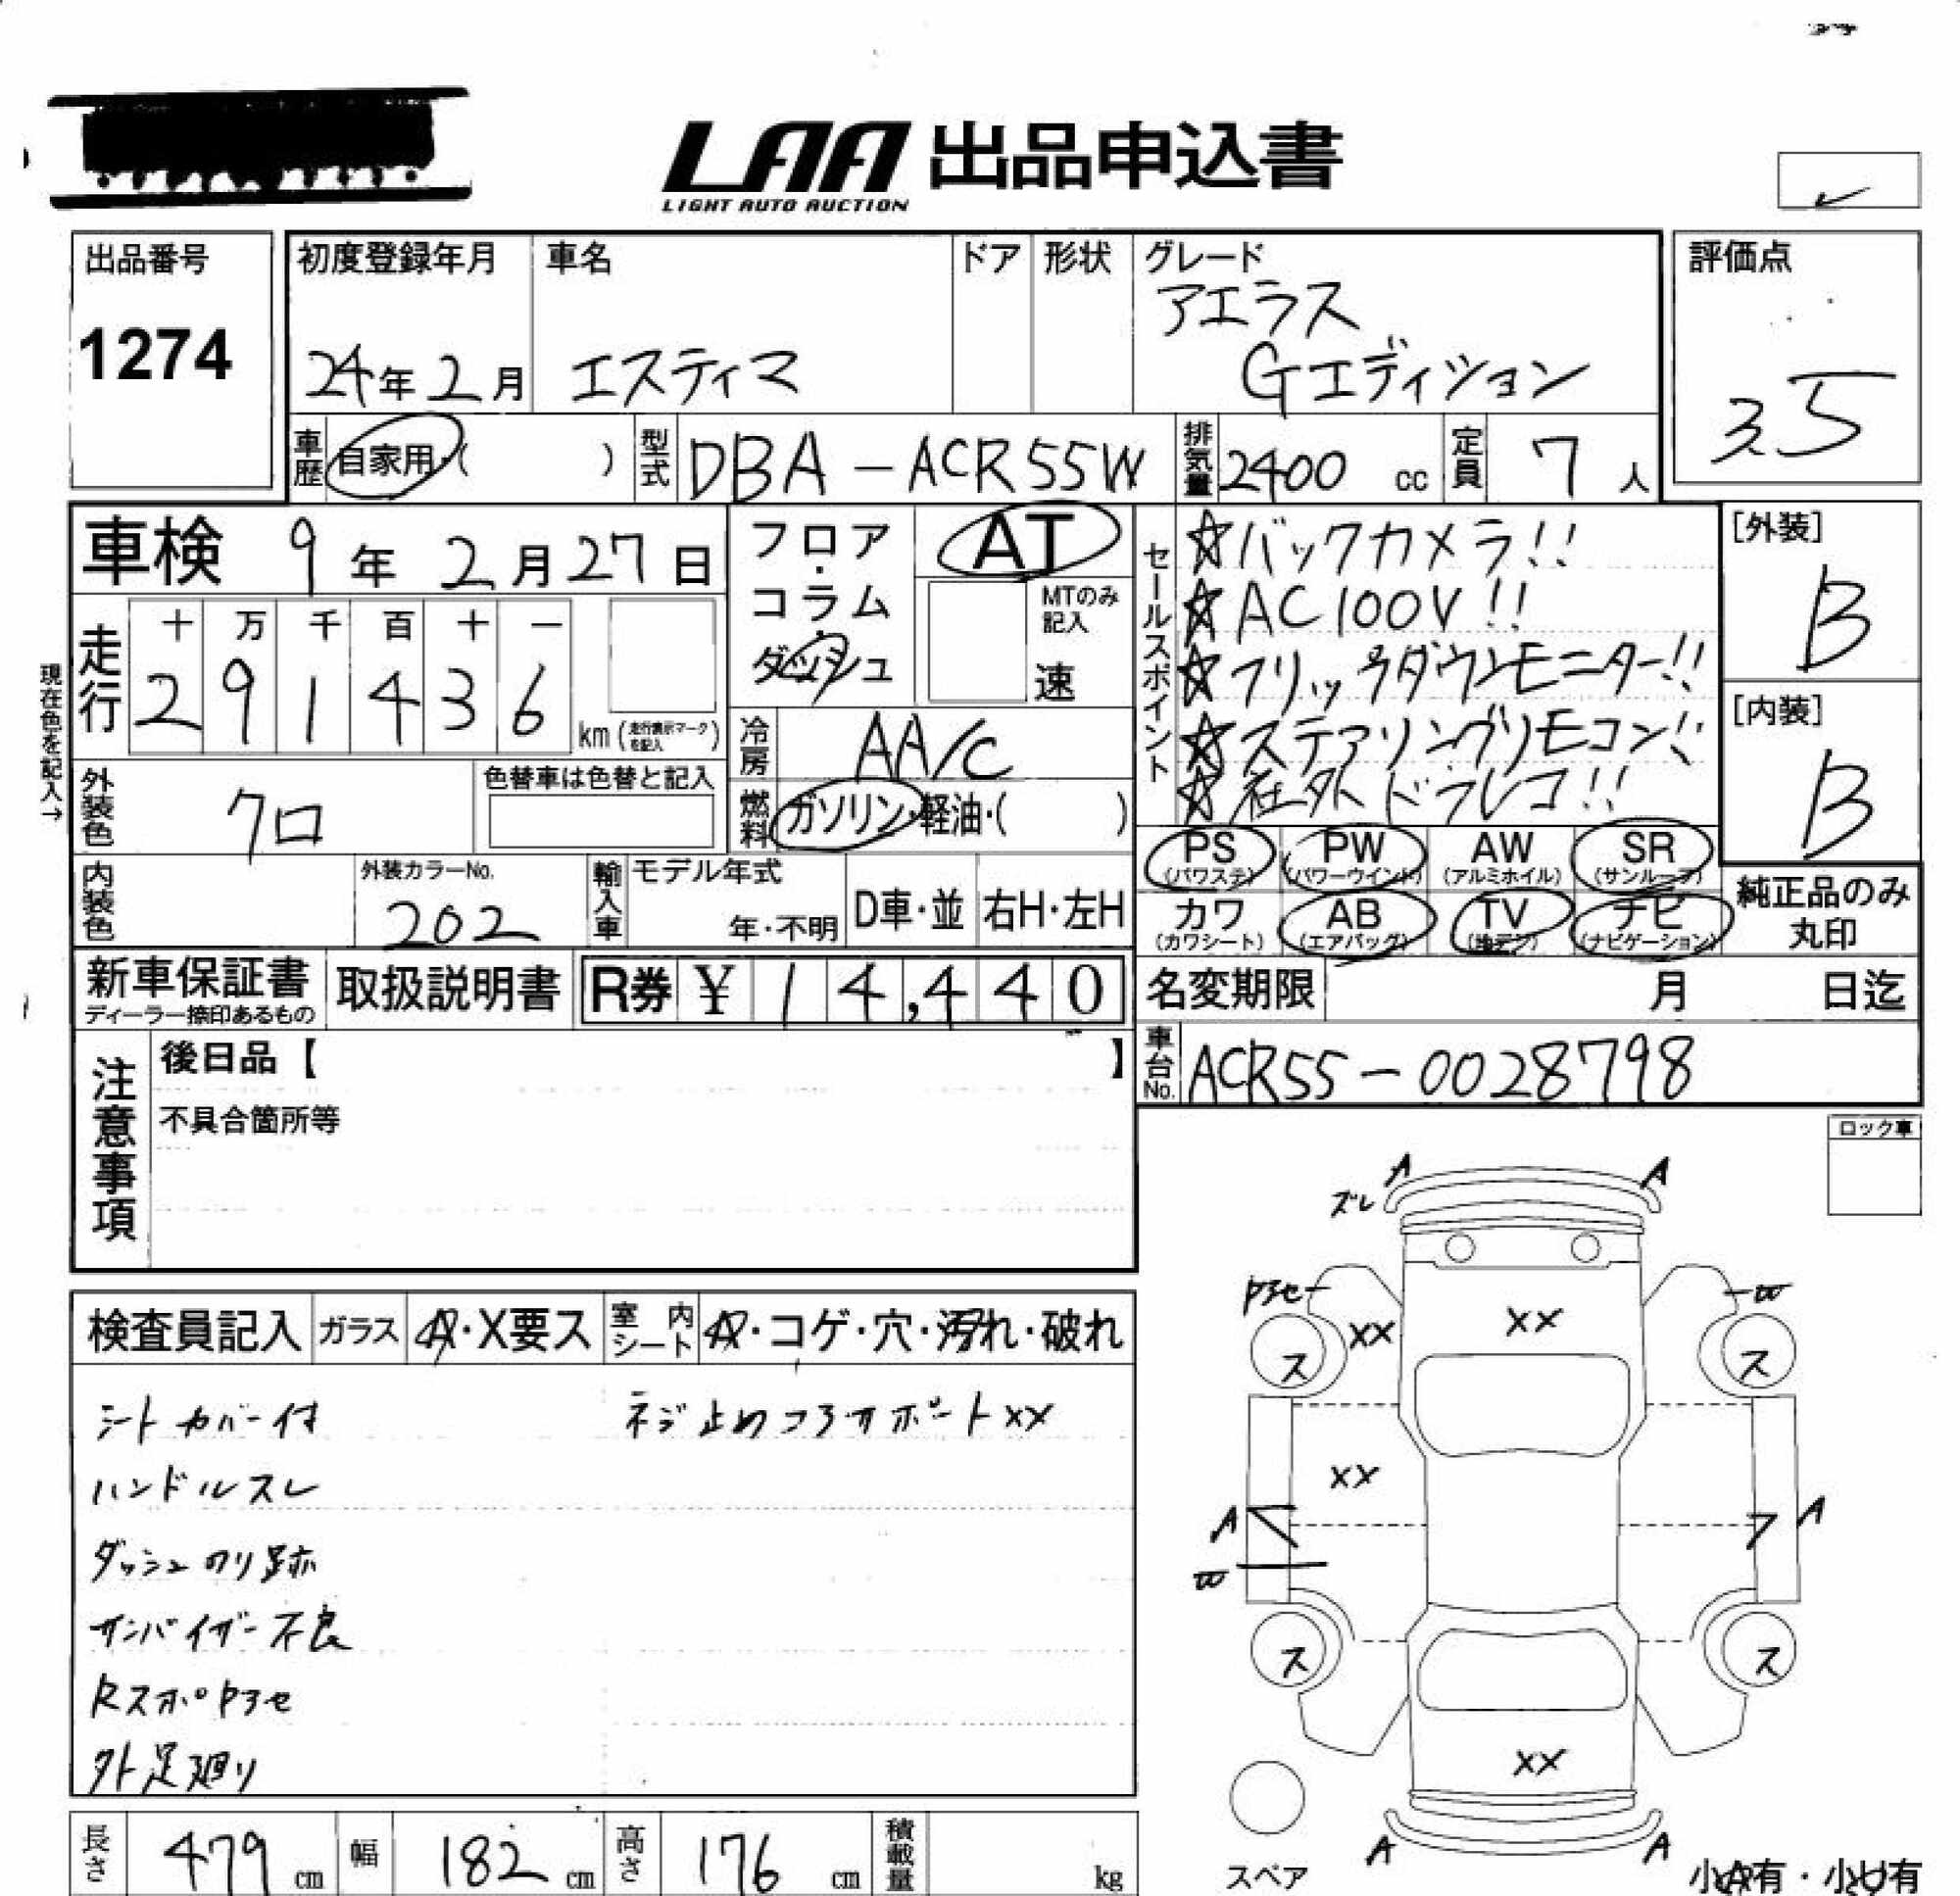 LAA 出品申込書
LIGHT AUTO AUCTION
出品番号
1274
初度登録年月
24年2月
車名
エスティマ
ドア
形状
グレード
アエラス
Gエディション
評価点
3.5
車歴
自家用・( )
型式
DBA-ACR55W
排気量
2400 cc
定員
7人
車検 9年2月27日
現在色を記入→
走行
十 万 千 百 十 一
2 9 1 4 3 6
km (走行表示マークを記入)
フロア
・
コラム
・
ダッシュ
AT
MTのみ記入
速
セールスポイント
☆バックカメラ!!
☆AC100V!!
☆フリップダウンモニター!!
☆ステアリングリモコン!!
☆社外ドラレコ!!
[外装]
B
[内装]
B
冷房
AA/C
燃料
ガソリン・軽油・( )
外装色
クロ
色替車は色替と記入
内装色
外装カラーNo.
202
輸入車
モデル年式
年・不明
D車・並
右H・左H
PS
(パワステ)
PW
(パワーウインド)
AW
(アルミホイル)
SR
(サンルーフ)
カワ
(カワシート)
AB
(エアバッグ)
TV
(地デジ)
ナビ
(ナビゲーション)
純正品のみ
丸印
新車保証書
ディーラー捺印あるもの
取扱説明書
R券 ¥ 14,440
名変期限 月 日迄
車台No.
ACR55-0028798
注意事項
後日品【 】
不具合箇所等
ロック車
検査員記入
ガラス
A・X要ス
室内シート
A・コゲ・穴・汚れ・破れ
シートカバー付
ネジ止めコアサポートXX
ハンドルスレ
ダッシュのり跡
サンバイザー不良
Rスポ
外足廻り
A
A
ズレ
XX
XX
ス
ス
XX
A
A
ス
ス
XX
A
A
スペア
小A有・小U有
長さ
479 cm
幅
182 cm
高さ
176 cm
積載量
kg